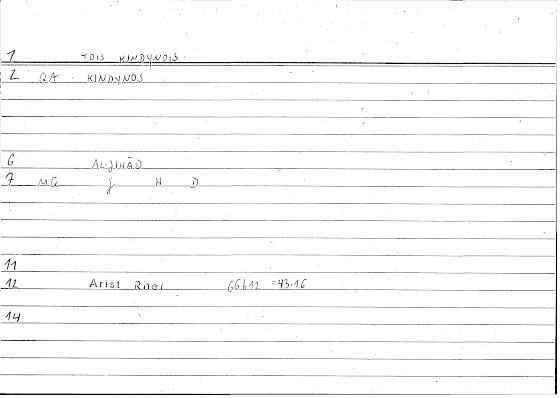 1 TOIS KINDYNOIS
2 QA KINDYNOS
6 AL-JIHĀD
7 MQ J H D
11
12 Arist Rhet 66b12 =43.16
14